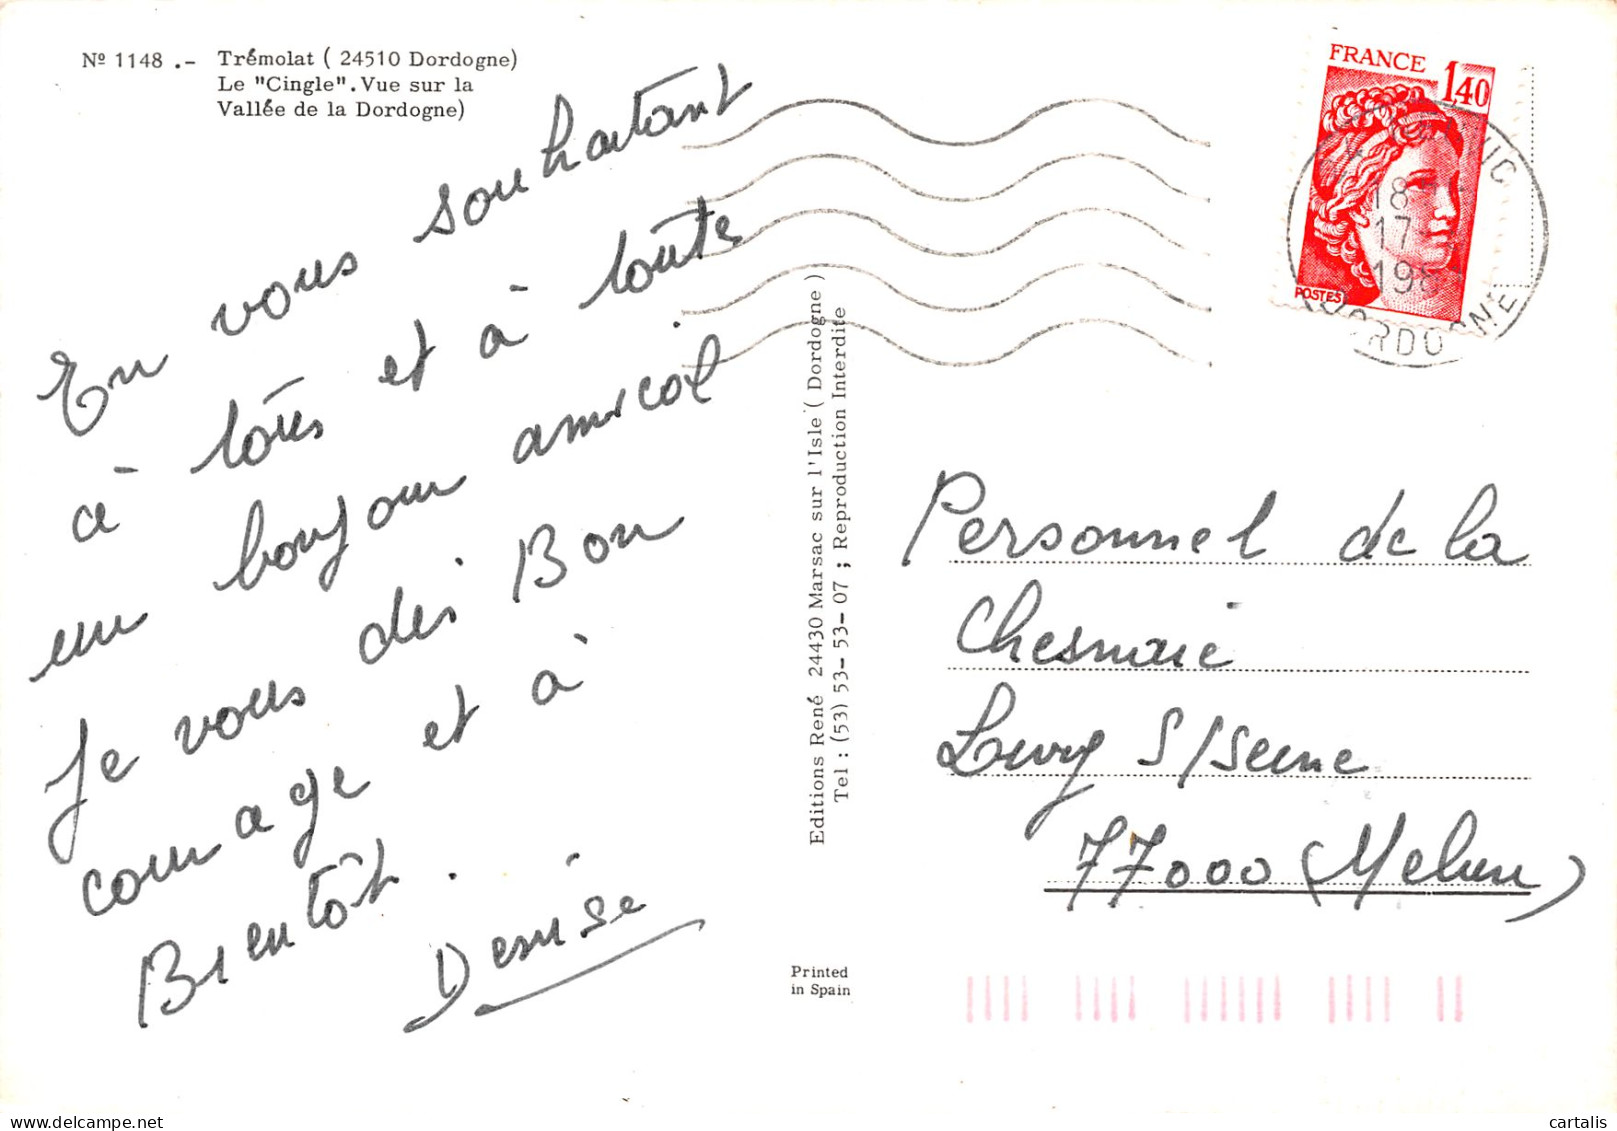 Nº 1148 .- Trémolat ( 24510 Dordogne)
Le "Cingle". Vue sur la
Vallée de la Dordogne)
En vous souhaitant
à tôus et à toute
un bonjour amical
Je vous dis Bon
courage et à
Bientôt.
Denise
Editions René 24430 Marsac sur l'Isle ( Dordogne )
Tel : (53) 53- 53- 07 ; Reproduction Interdite
Printed
in Spain
FRANCE
1,40
POSTES
18
17
198
DORDOGNE
Personnel de la
Chesnaie
Livry S/Seine
77000 (Melun)
cartalis
delcampe.net